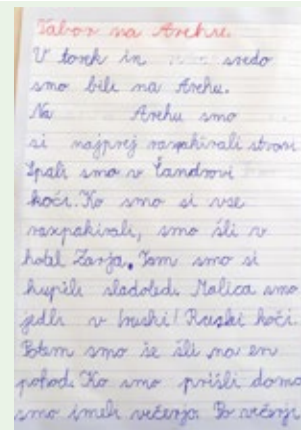 Tabor na Arehu.
V torek in sredo
smo bili na Arehu.
Na Arehu smo
si najprej razpakirali stvari
Spali smo v Čandrovi
koči. Ko smo si vse
razpakirali, smo šli v
hotel Zarja. Tam smo si
kupili sladoled. Malica smo
jedli v Ruški koči.
Potem smo še šli na en
pohod. Ko smo prišli domov
smo imeli večerjo. Po večerji